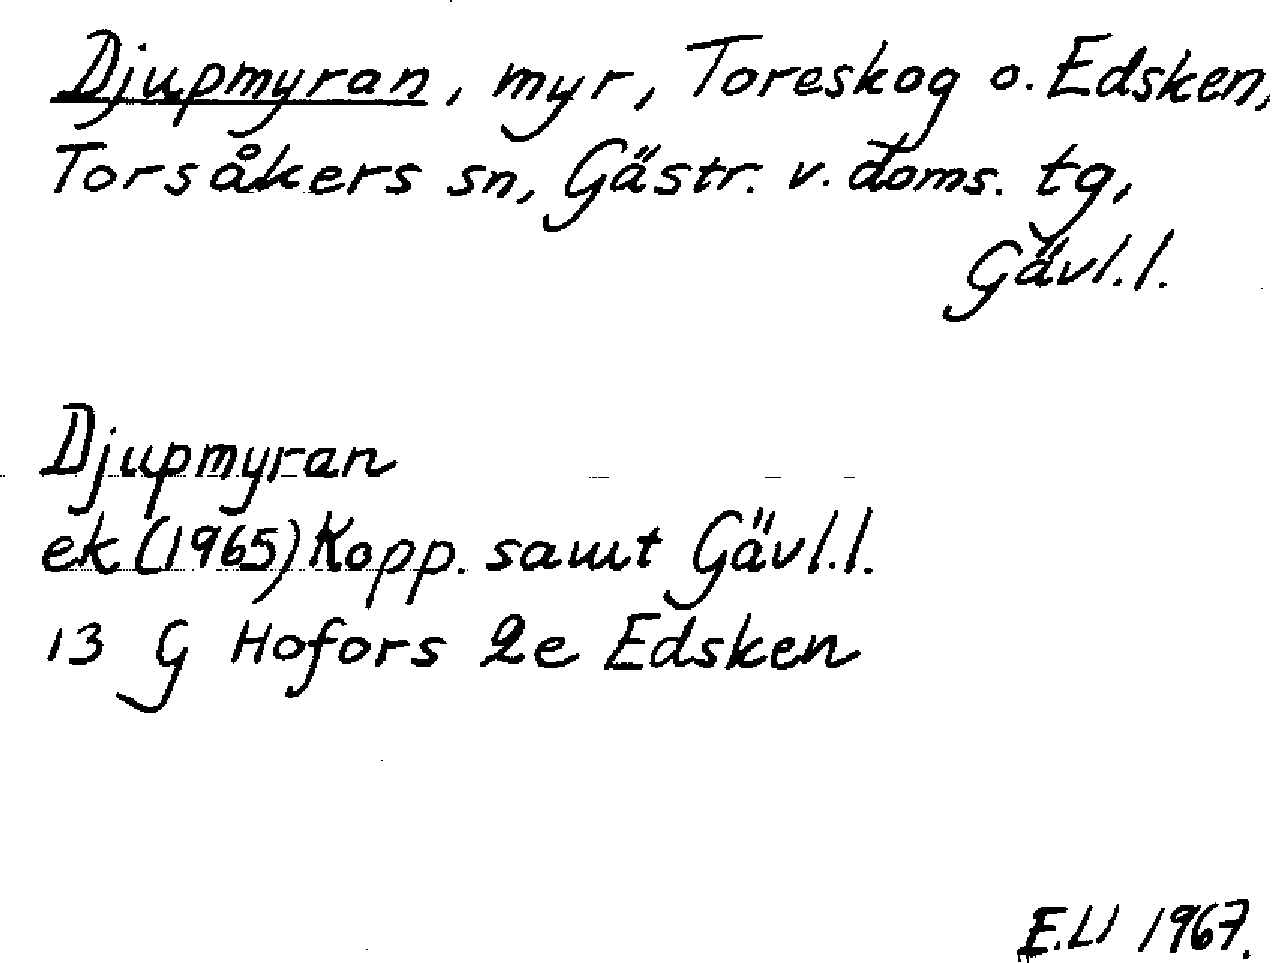 Djupmyran, myr, Toreskog o. Edsken,
Torsåkers sn, Gästr. v. doms. tg,
Gävl.l.
Djupmyran
ek (1965) Kopp. samt Gävl.l.
13 G Hofors 2e Edsken
1967.